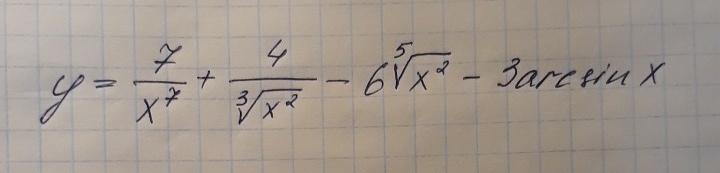 y = 7/x⁷ + 4/∛x² − 6⁵√x² − 3arcsin x